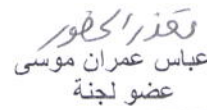 تعذر الحضور
عباس عمران موسى
عضو لجنة